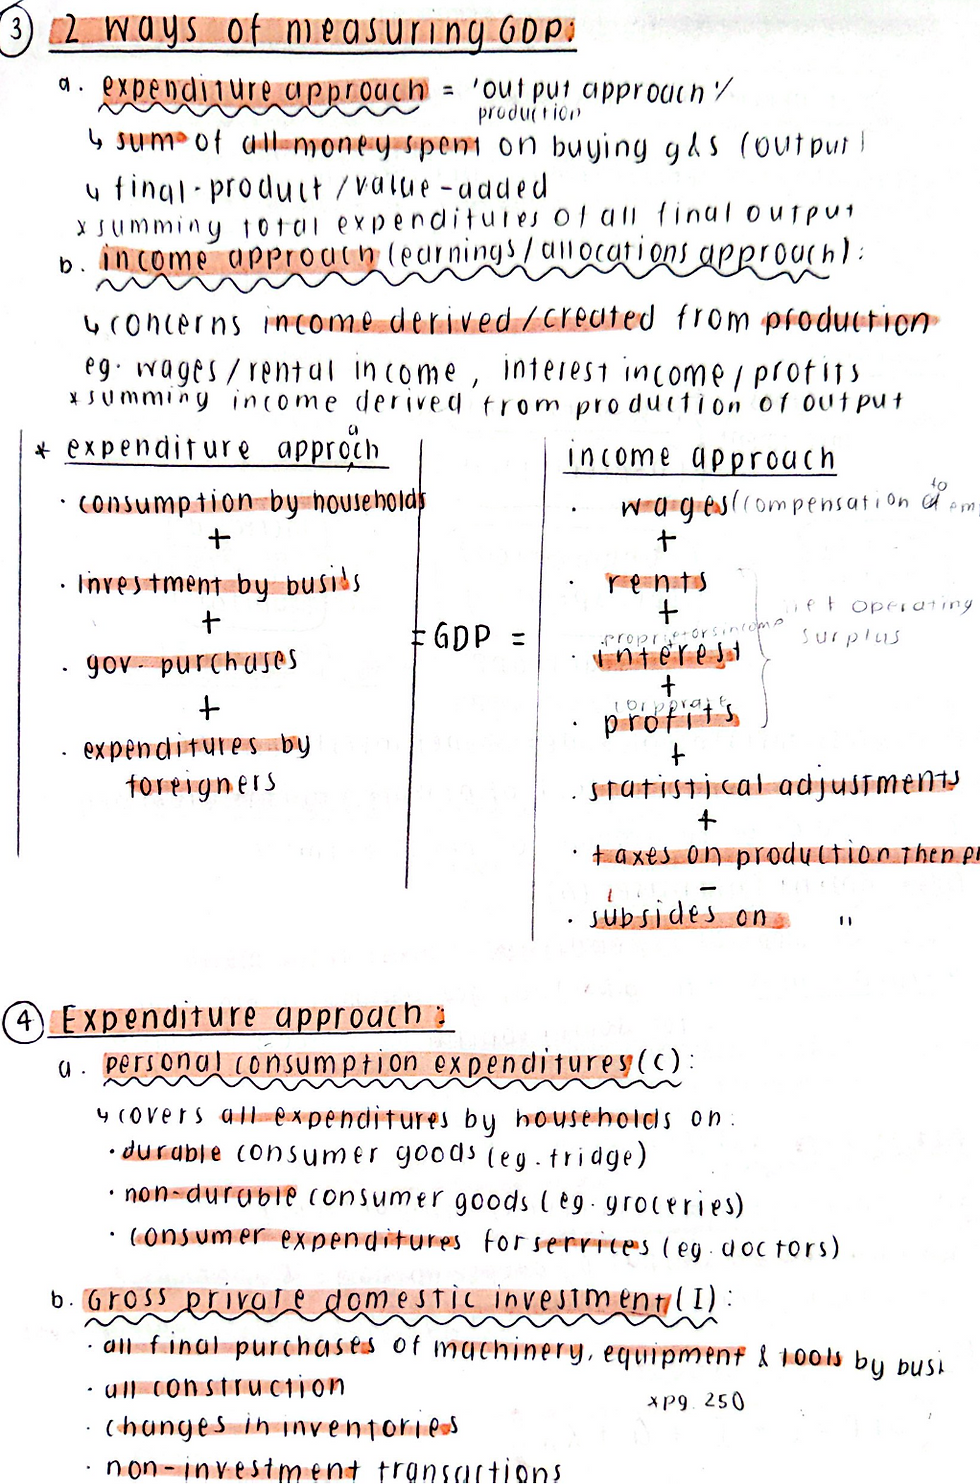 3 2 ways of measuring GDP:
a. expenditure approach = 'output approach'/
production
↳ sum of all money spent on buying g&s (output)
↳ final-product/value-added
* summing total expenditures of all final output
b. income approach (earnings/allocations approach):
↳ concerns income derived/created from production
eg. wages/rental income, interest income/profits
* summing income derived from production of output
* expenditure approach
· consumption by households
+
· investment by busi's
+
· gov. purchases
+
· expenditures by
foreigners
= GDP =
income approach
· wages (compensation to
+
· rents
+
proprietors income
· interest
+
corporate
· profits
net operating
surplus
+
· statistical adjustments
+
· taxes on production then
-
· subsides on "
4 Expenditure approach:
a. personal consumption expenditures (C):
↳ covers all expenditures by households on:
· durable consumer goods (eg. fridge)
· non-durable consumer goods (eg. groceries)
· consumer expenditures for services (eg. doctors)
b. Gross private domestic investment (I):
· all final purchases of machinery, equipment & tools by busi
· all construction
* pg. 250
· changes in inventories
· non-investment transactions